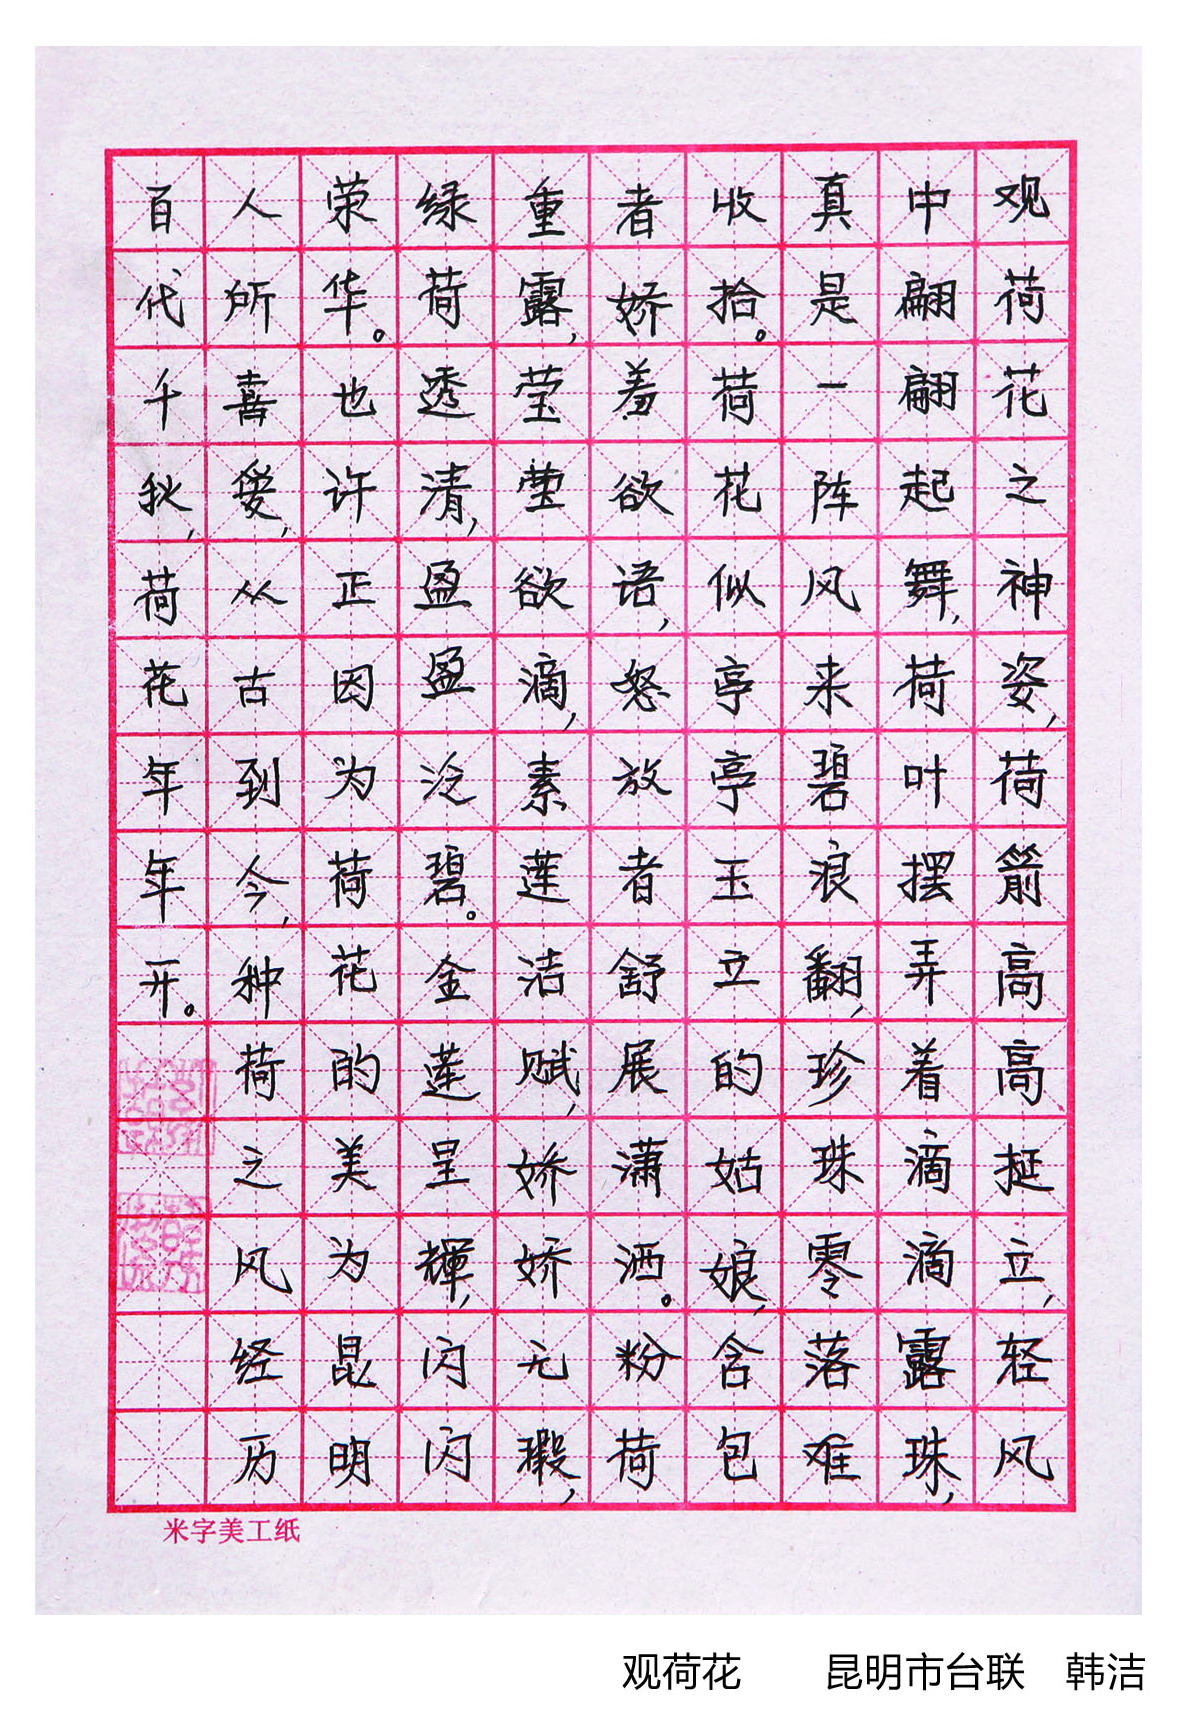 观荷花之神姿,荷箭高高挺立,轻风
中翩翩起舞,荷叶摆弄着滴滴露珠,
真是一阵风来碧浪翻,珍珠零落难
收拾。荷花似亭亭玉立的姑娘,含包
者娇羞欲语,怒放者舒展潇洒。粉荷
重露,莹莹欲滴,素莲洁赋,娇娇无瑕,
绿荷透清,盈盈泛碧。金莲呈辉,闪闪
荣华。也许正因为荷花的美为昆明
人所喜爱,从古到今,种荷之风经历
百代千秋,荷花年年开。
米字美工纸
观荷花 昆明市台联 韩洁